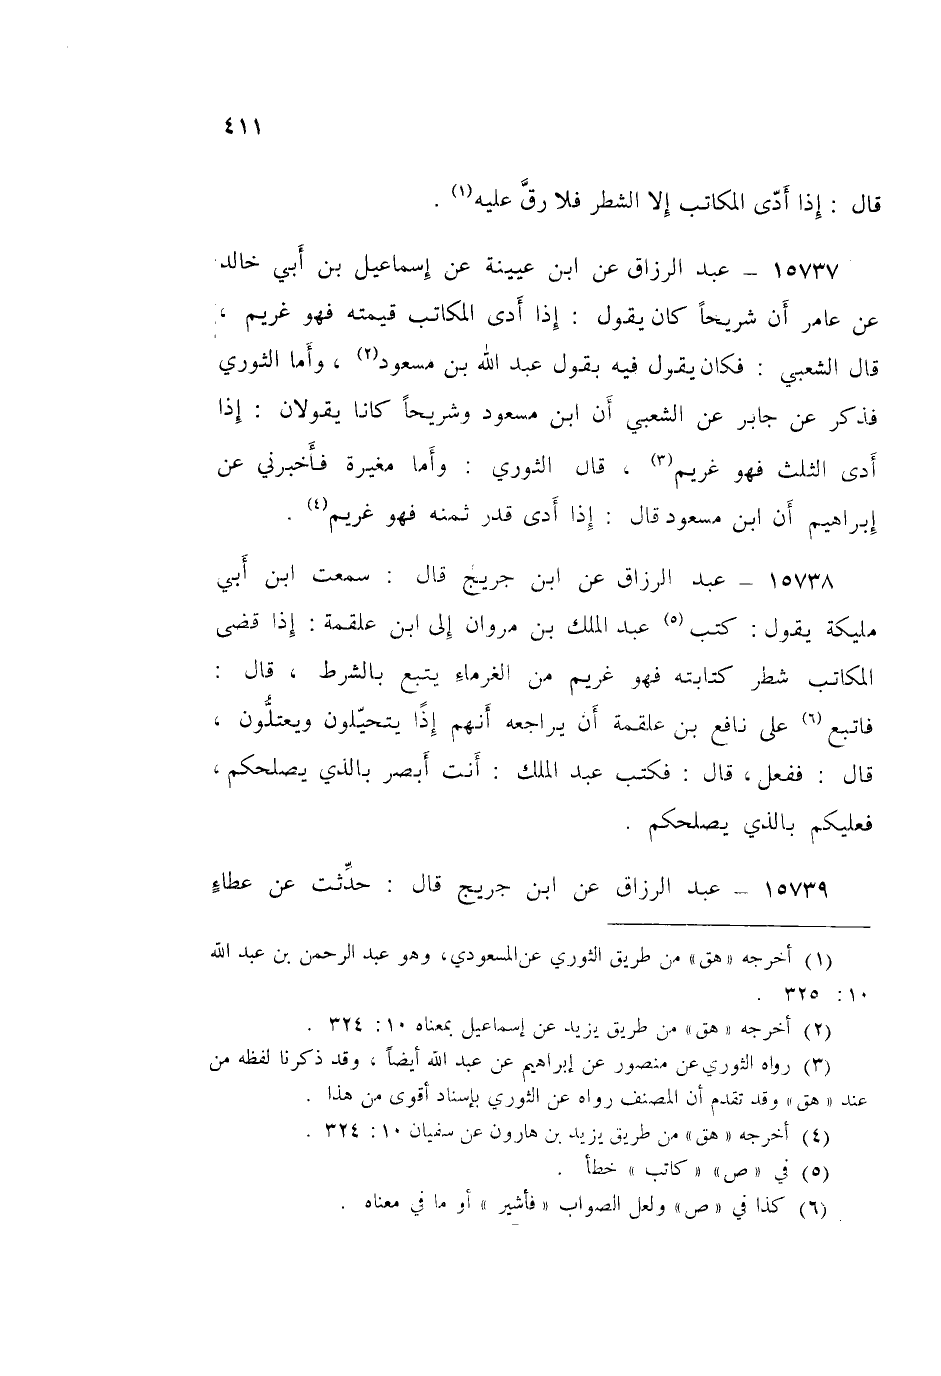 ٤١١
قال : إذا أَدّى المكاتب إلا الشطر فلا رقَّ عليه(١) .
١٥٧٣٧ – عبد الرزاق عن ابن عيينة عن إسماعيل بن أَبي خالد
عن عامر أَن شريحاً كان يقول : إذا أدى المكاتب قيمته فهو غريم ،
قال الشعبي : فكان يقول فيه بقول عبد الله بن مسعود(٢) ، وأَما الثوري
فذكر عن جابر عن الشعبي أَن ابن مسعود وشريحاً كانا يقولان : إذا
أَدى الثلث فهو غريم(٣) ، قال الثوري : وأَما مغيرة فأَخبرني عن
إبراهيم أَن ابن مسعود قال : إذا أَدى قدر ثمنه فهو غريم(٤) .
١٥٧٣٨ – عبد الرزاق عن ابن جريج قال : سمعت ابن أَبي
مليكة يقول : كتب(٥) عبد الملك بن مروان إلى ابن علقمة : إذا قضى
المكاتب شطر كتابته فهو غريم من الغرماء يتبع بالشرط ، قال :
فاتبع(٦) على نافع بن علقمة أَن يراجعه أَنهم إذًا يتحيّلون ويعتلُّون ،
قال : ففعل ، قال : فكتب عبد الملك : أَنت أَبصر بالذي يصلحكم ،
فعليكم بالذي يصلحكم .
١٥٧٣٩ – عبد الرزاق عن ابن جريج قال : حدِّثت عن عطاءٍ
(١) أخرجه « هق » من طريق الثوري عن المسعودي، وهو عبد الرحمن بن عبد الله
١٠: ٣٢٥ .
(٢) أخرجه « هق » من طريق يزيد عن إسماعيل بمعناه ١٠: ٣٢٤ .
(٣) رواه الثوري عن منصور عن إبراهيم عن عبد الله أيضاً ، وقد ذكرنا لفظه من
عند « هق » وقد تقدم أن المصنف رواه عن الثوري بإسناد أقوى من هذا .
(٤) أخرجه « هق » من طريق يزيد بن هارون عن سفيان ١٠: ٣٢٤ .
(٥) في « ص » « كاتب » خطأ .
(٦) كذا في « ص » ولعل الصواب « فأشير » أو ما في معناه .